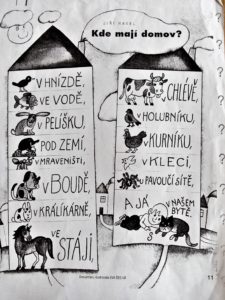 JIŘÍ HAVEL
Kde mají domov?
V HNÍZDĚ,
VE VODĚ,
V PELÍŠKU,
POD ZEMÍ,
V MRAVENIŠTI,
V BOUDĚ,
V KRÁLÍKÁRNĚ,
VE
STÁJI,
V CHLÉVĚ,
V HOLUBNÍKU,
V KURNÍKU,
V KLECI,
V PAVOUČÍ SÍTĚ,
A JÁ
V NAŠEM
BYTĚ.
11